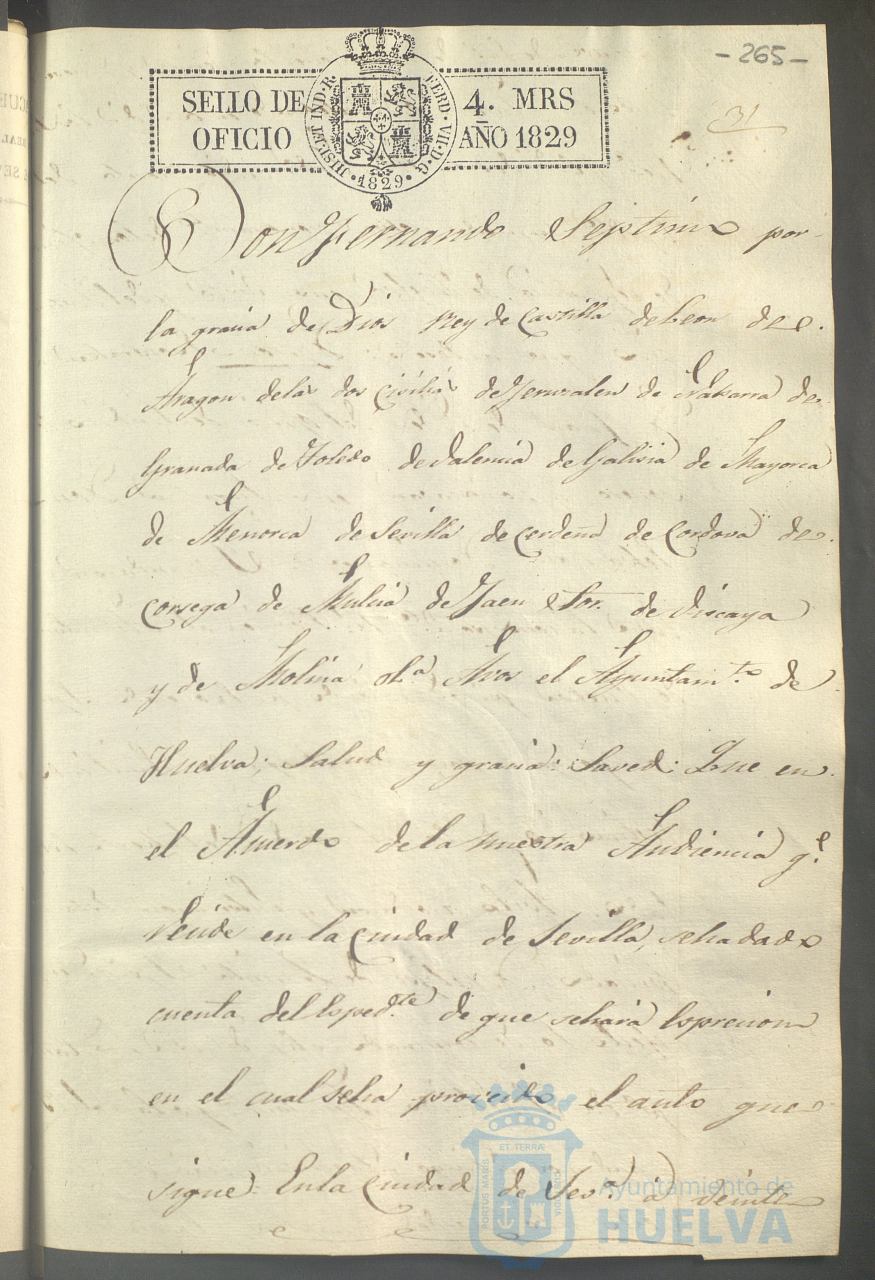 - 265 -
31
SELLO DE 4. MRS
OFICIO AÑO 1829
HISP. ET IND. R. FERD. VII. D. G. 1829
Don Fernando Septimo por
la gracia de Dios Rey de Castilla de Leon de
Aragon delas dos Cicilias de Jerusalen de Nabarra de
Granada de Toledo de Valencia de Galisia de Mayorca
de Menorca de Sevilla de Cerdeña de Cordova de
Corsega de Mulcia de Jaen Sor. de Viscaya
y de Molina &ª Avos el Ayuntamto. de
Huelva; Salud y gracia: Saved: Que en
el Acuerdo de la nuestra Audiencia q.e
Recide en la Ciudad de Sevilla, seha dado
cuenta del Esped.te de que sehará Esprecion
en el cual seha proveido el auto que
sigue. En la Ciudad de Sev.a á veinte
ET TERRÆ
PORTUS MARIS
CUSTODIA
Ayuntamiento de
HUELVA